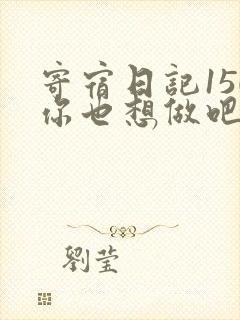 寄宿日記15
你也想做吧
劉莹